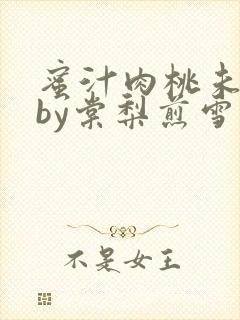 蜜汁肉桃未
by棠梨煎雪
不是女王